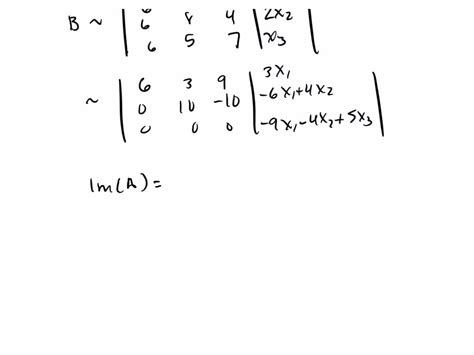 B ~ | 6 8 4 | 2x₂ |
6 5 7 | x₃
~ | 6 3 9 | 3x₁ |
0 10 -10 | -6x₁+4x₂
0 0 0 | -9x₁-4x₂+5x₃
Im(A)=